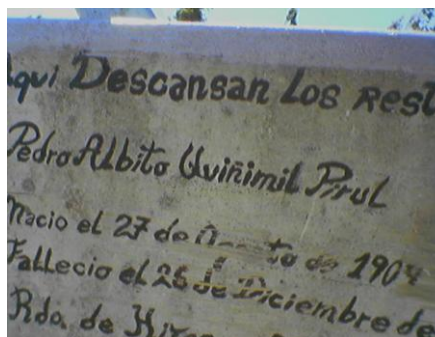 Aqui Descansan Los Rest
Pedro Albito Uviñimil Pirul
Nacio el 27 de Agosto de 1904
Fallecio el 26 de Diciembre de
Rdo. de